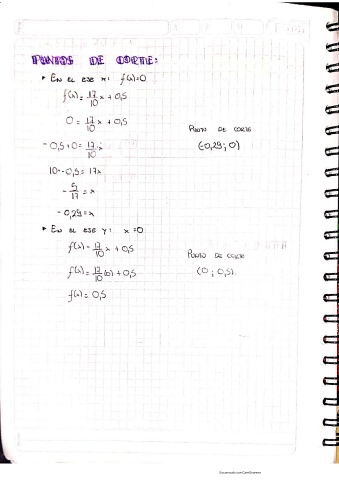 PUNTOS DE CORTE:
▸ EN EL EJE X: f(x)=0
f(x)= 17/10 x + 0,5
0 = 17/10 x + 0,5
-0,5+0= 17/10 x
10·-0,5 = 17x
-5/17 = x
-0,29 = x
PUNTO DE CORTE
(-0,29; 0)
▸ EN EL EJE Y: X=0
f(x)= 17/10 x + 0,5
f(x)= 17/10 (0) + 0,5
f(x)= 0,5
PUNTO DE CORTE
(0 ; 0,5).
Escaneado con CamScanner